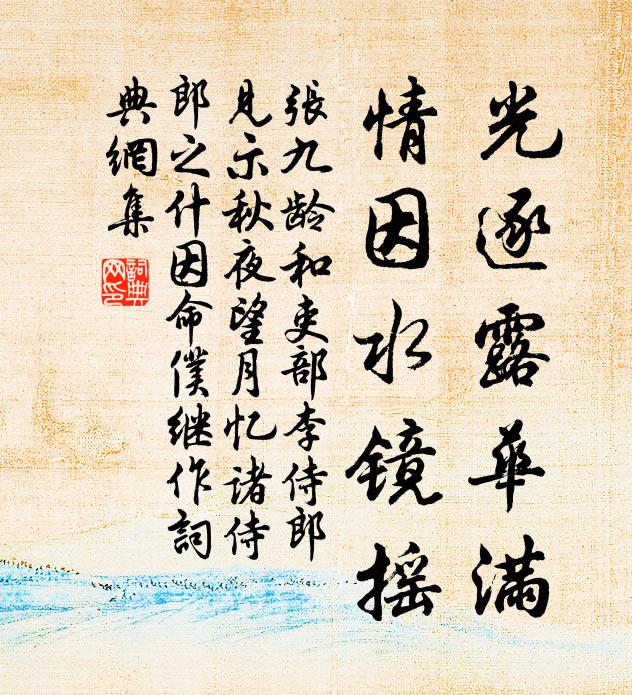 光逐露華滿
情因水镜摇
張九龄和吏部李侍郎
見示秋夜望月忆諸侍
郎之什因命僕继作詞
典網集
詞典
网印